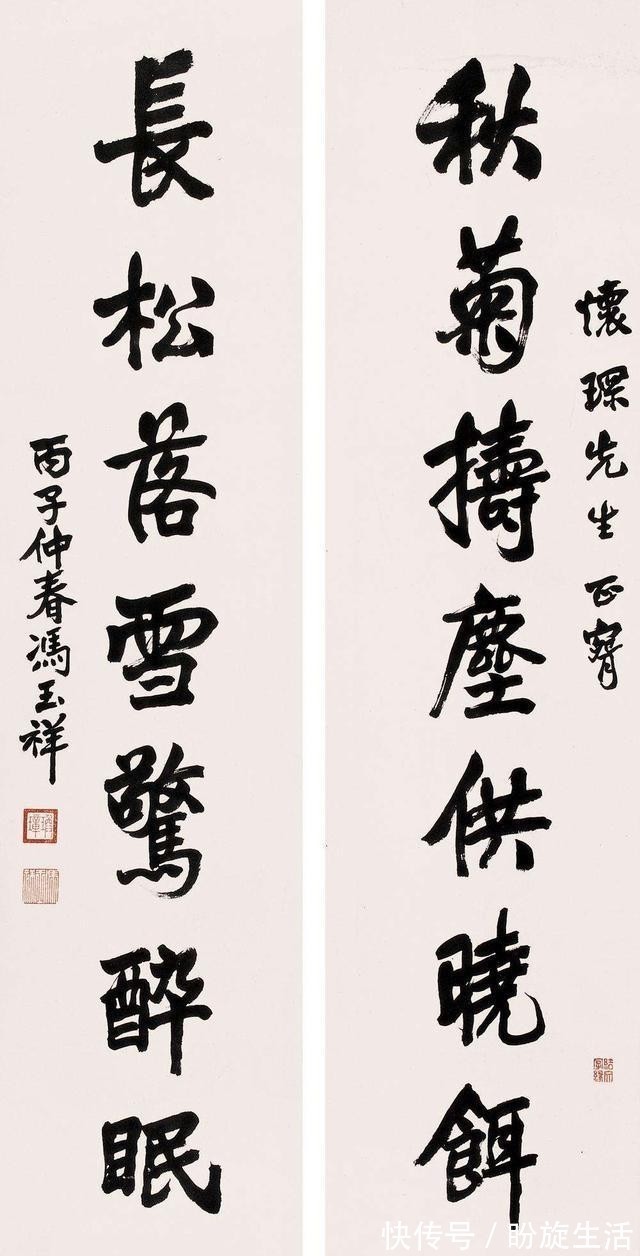 懷琛先生正
秋菊擣塵供曉餌
長松落雪驚醉眠
丙子仲春馮玉祥
快传号/盼旋生活